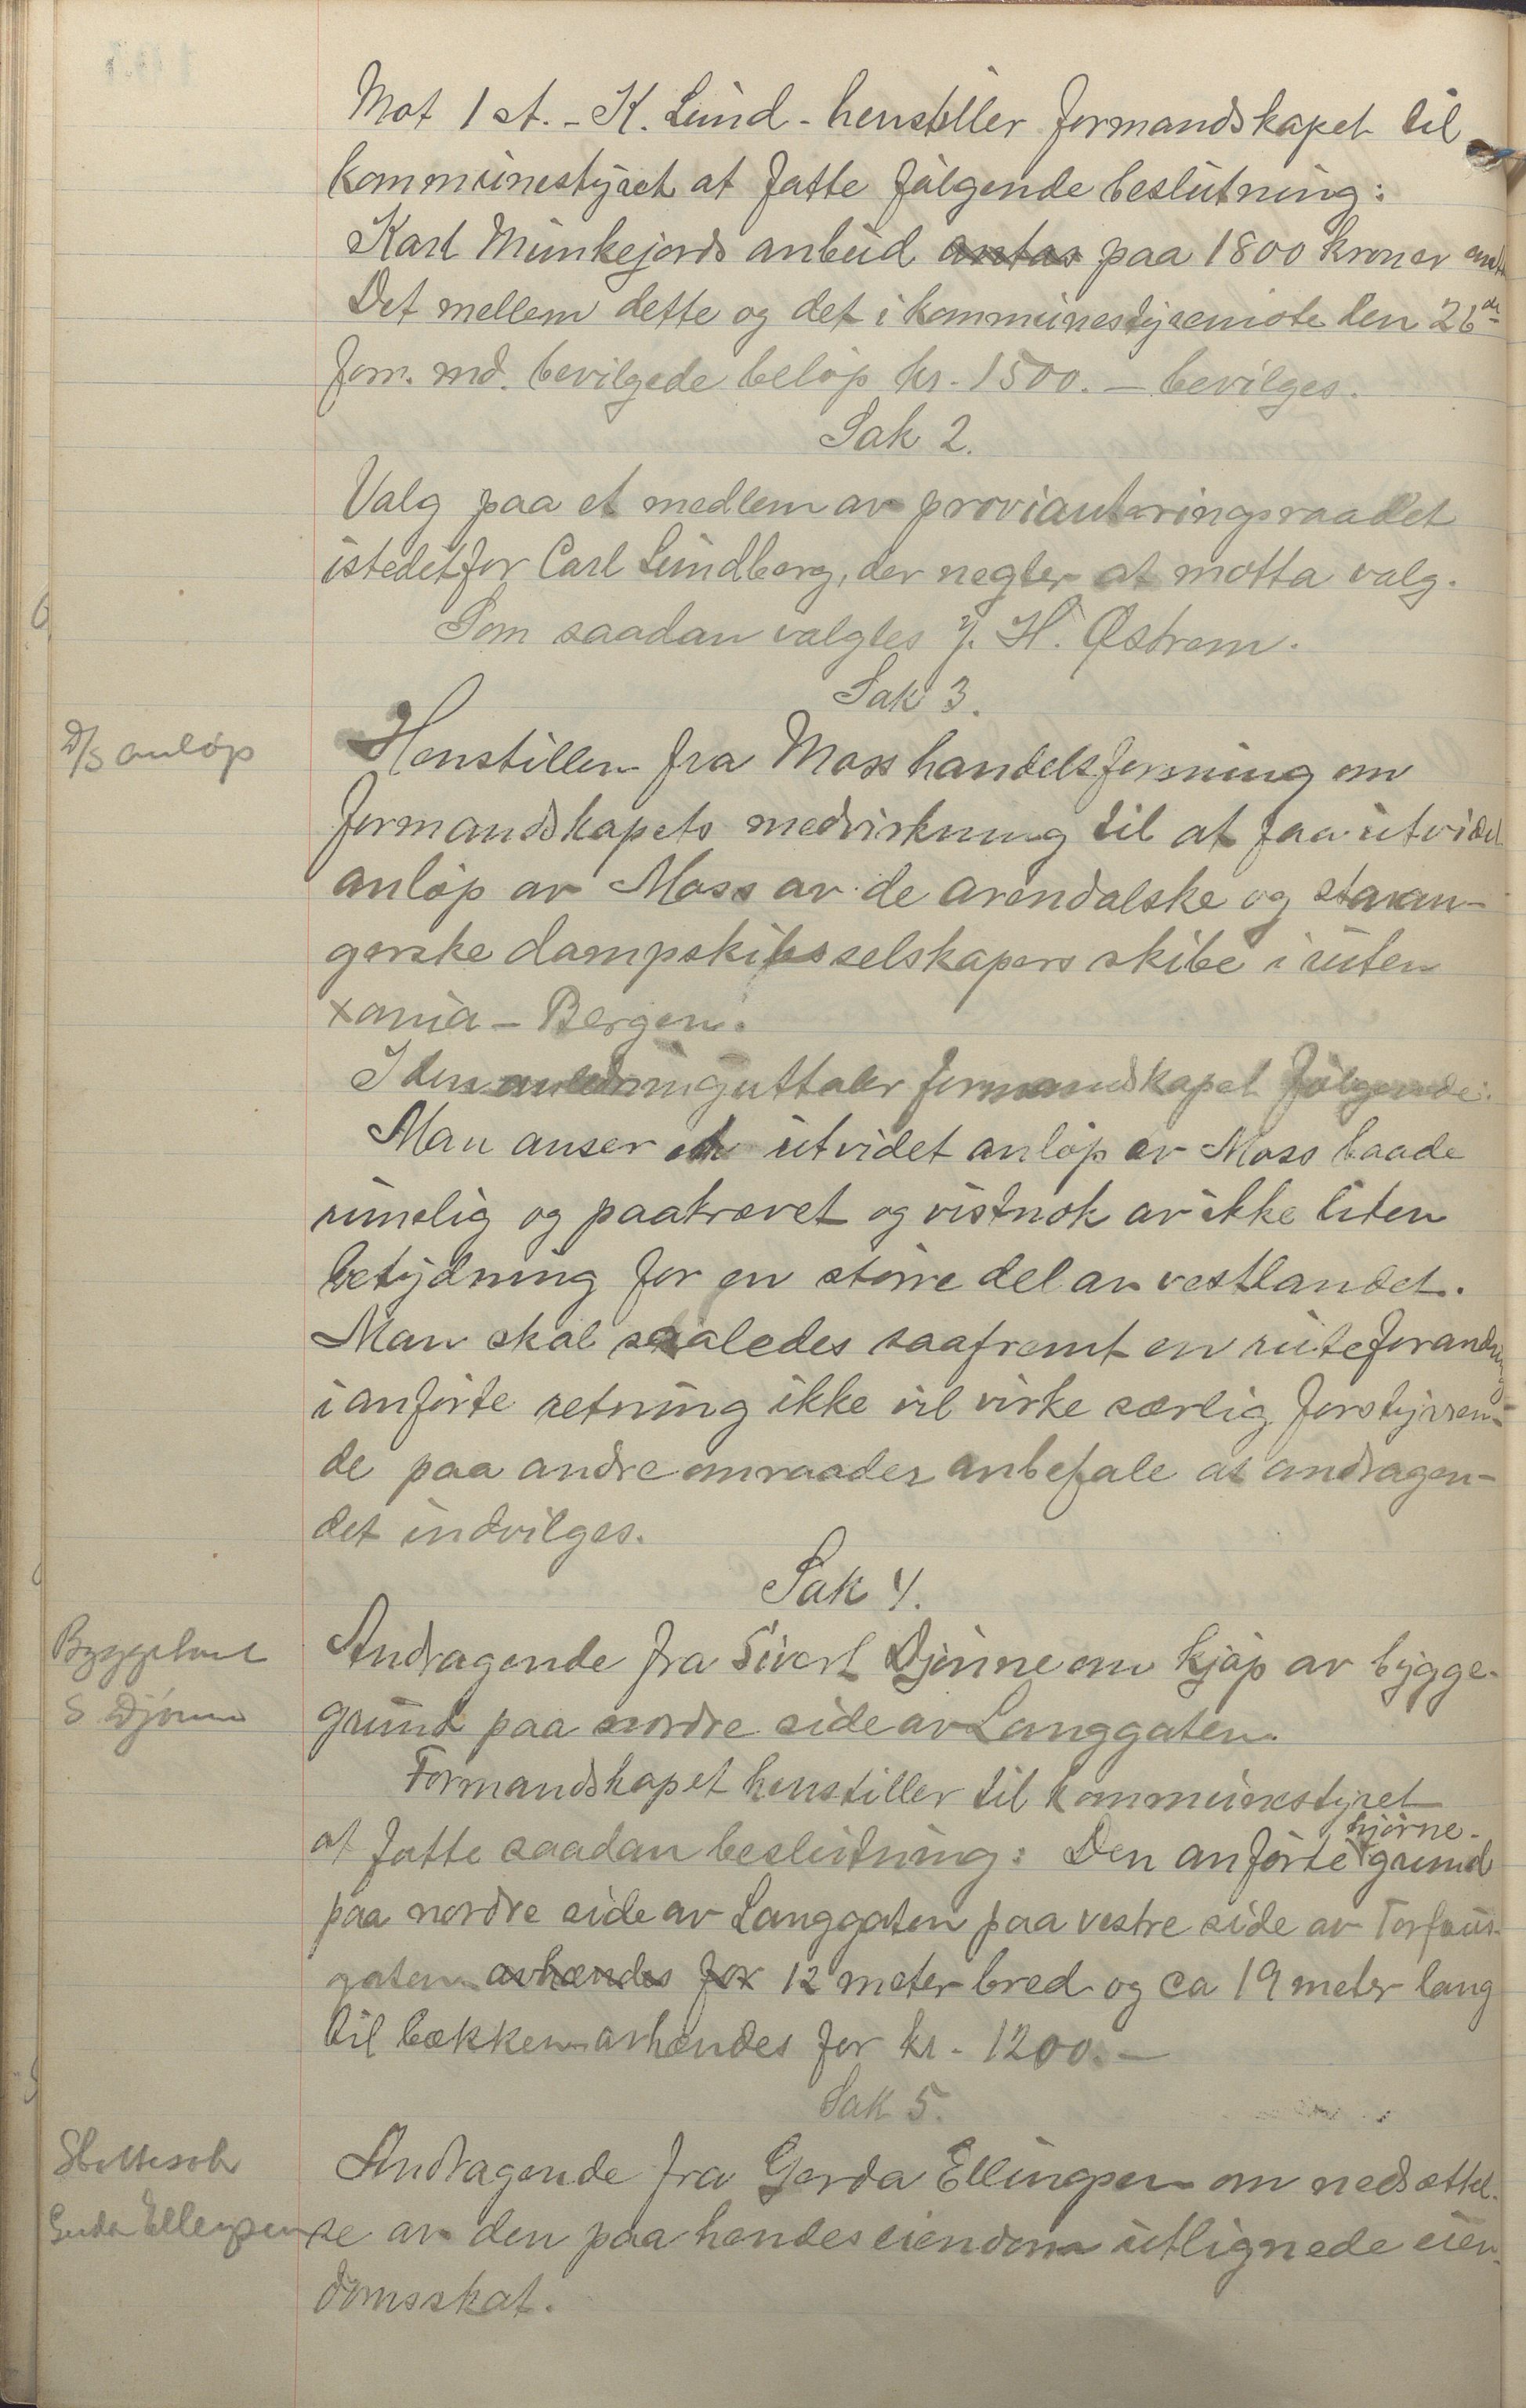 Mot 1 st. - K. Lund - henstiller formandskapet til
kommunestyret at fatte følgende beslutning:
Karl Munkejords anbud antas paa 1800 kroner
Det mellem dette og det i kommunestyremøte den 26de
forr. md. bevilgede beløp kr. 1500.- bevilges.
Sak 2.
Valg paa et medlem av provianteringsraadet
istedetfor Carl Lundberg, der negter at motta valg.
Som saadan valgtes H. Østrem.
Sak 3.
D/S anløp
Henstillen fra Moss handelsforening om
formandskapets medvirkning til at faa utvidet
anløp av Moss av de arendalske og stavan-
gerske dampskibsselskapers skibe i ruten
Xania - Bergen.
I den anledning uttaler formandskapet følgende:
Man anser et utvidet anløp av Moss baade
rimelig og paakrævet og vistnok av ikke liten
betydning for en større del av vestlandet.
Man skal saaledes saafremt en ruteforandring
i anførte retning ikke vil virke særlig forstyrren-
de paa andre omraader anbefale at andragen-
det indvilges.
Sak 4.
Byggetomt
S Djønne
Andragende fra Sivert Djønne om kjøp av bygge-
grund paa nordre side av Langgaten.
Formandskapet henstiller til kommunestyret
at fatte saadan beslutning: Den anførte hjørne-
grund
paa nordre side av Langgaten paa vestre side av Torfæus-
gaten avhændes for 12 meter bred og ca 19 meter lang
til bækken avhændes for kr. 1200.-
Sak 5.
Skattesak
Gerda Ellingsen
Andragende fra Gerda Ellingsen om nedsættel-
se av den paa hendes eiendom utlignede eien-
domsskat.